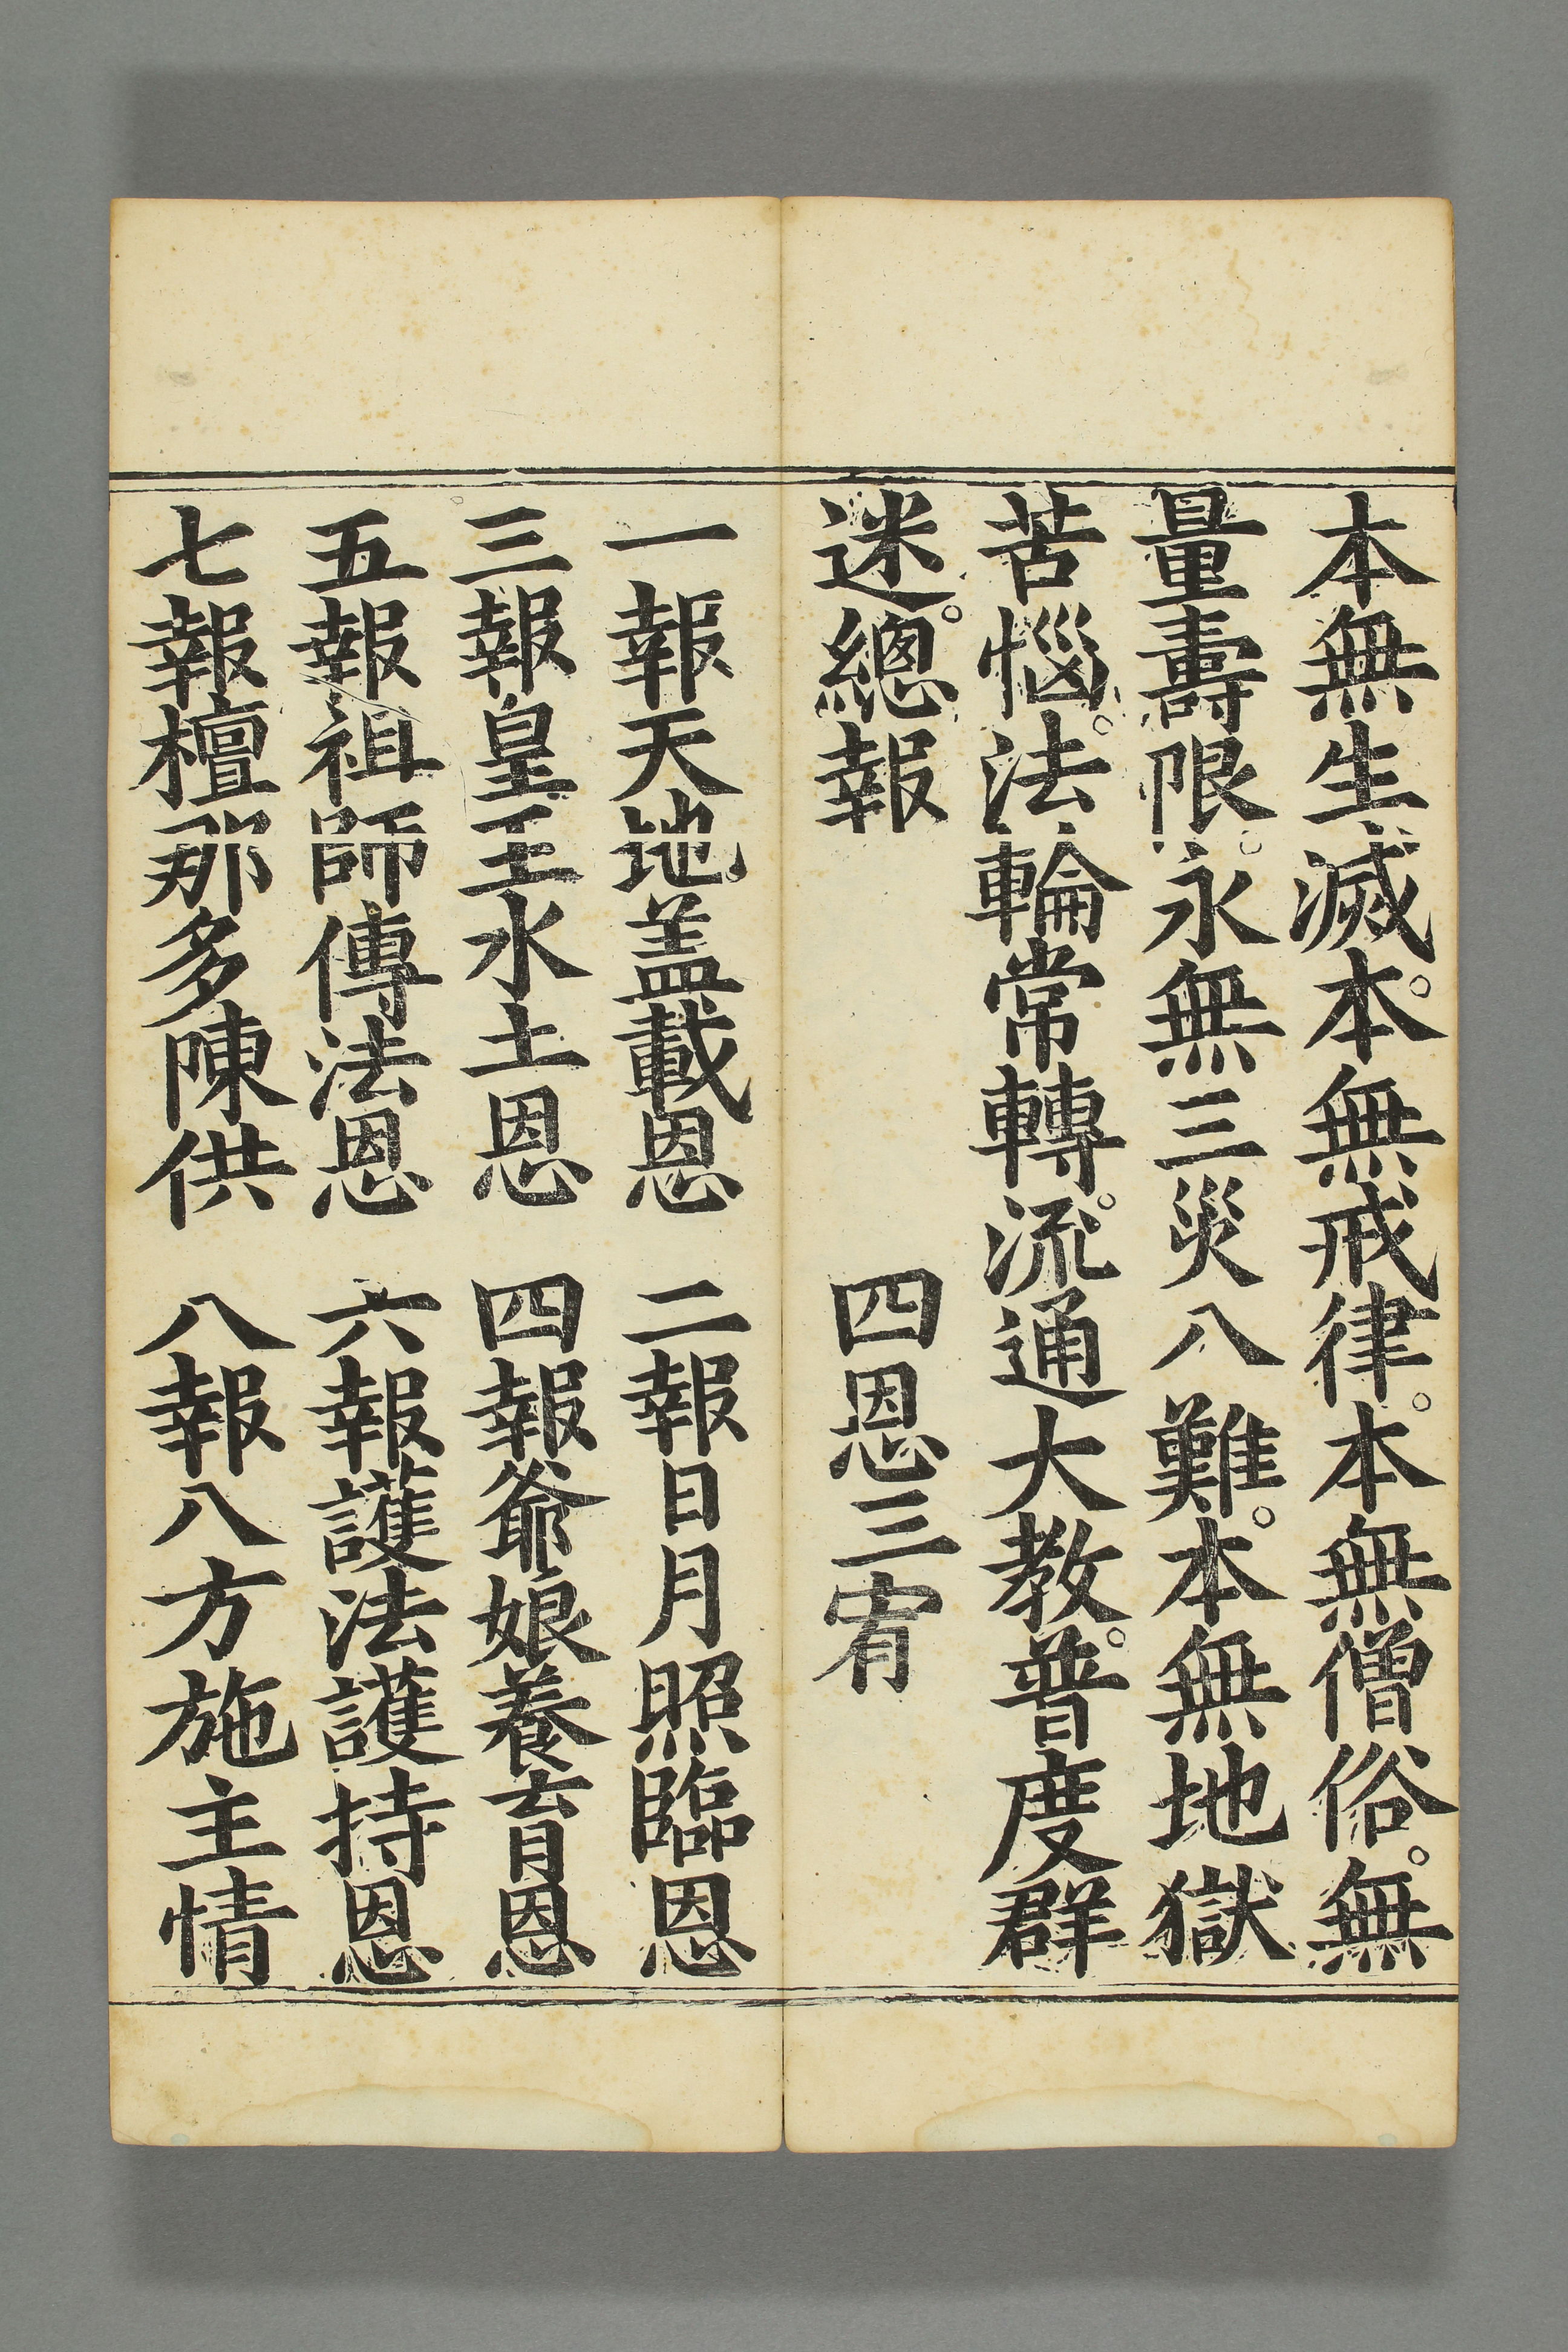 本無生滅。本無戒律。本無僧俗。無
量壽限。永無三災八難。本無地獄
苦惱。法輪常轉。流通大教。普度群
迷。總報　四恩三宥
一報天地盖載恩　二報日月照臨恩
三報皇王水土恩　四報爺娘養育恩
五報祖師傳法恩　六報護法護持恩
七報檀那多陳供　八報八方施主情